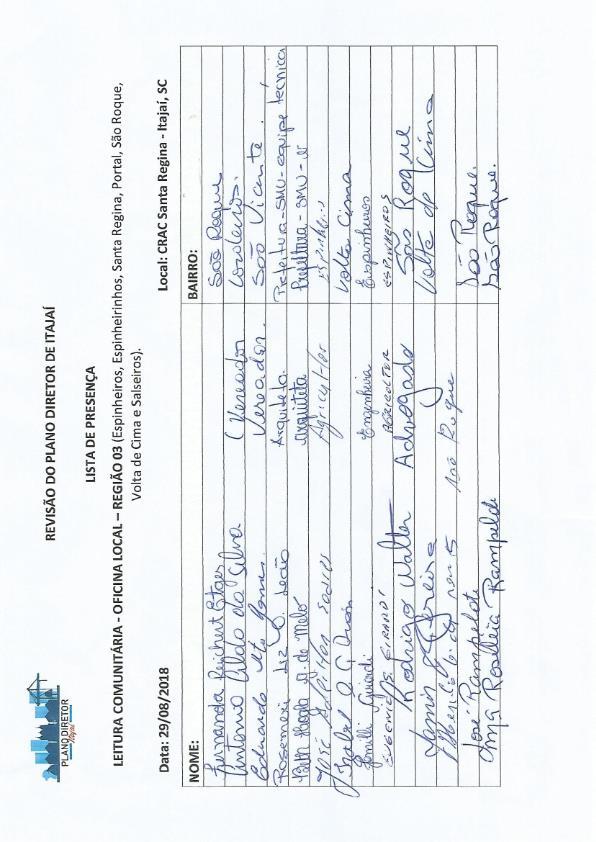 PLANO DIRETOR
Itajaí
REVISÃO DO PLANO DIRETOR DE ITAJAÍ
LISTA DE PRESENÇA
LEITURA COMUNITÁRIA – OFICINA LOCAL – REGIÃO 03 (Espinheiros, Espinheirinhos, Santa Regina, Portal, São Roque,
Volta de Cima e Salseiros).
Data: 29/08/2018 Local: CRAC Santa Regina - Itajaí, SC
NOME: BAIRRO:
Fernanda Reichert São Roque
Antonio Aldo da Silva (Vereador Cordeiros.
Eduardo Vereador. São Vicente.
Rosemeri Luz G. Leão Arquiteta Prefeitura-SMU-equipe técnica
de Melo Arquiteta Prefeitura-SMU-
José Agricultor
Izabel Volta Cima
Engenheira Espinheiros
AGRICULTOR ESPINHEIROS
Rodrigo Walter Advogado São Roque
Pereira Volta de Cima
São Roque
José Rampelotti São Roque.
Rampelotti São Roque.